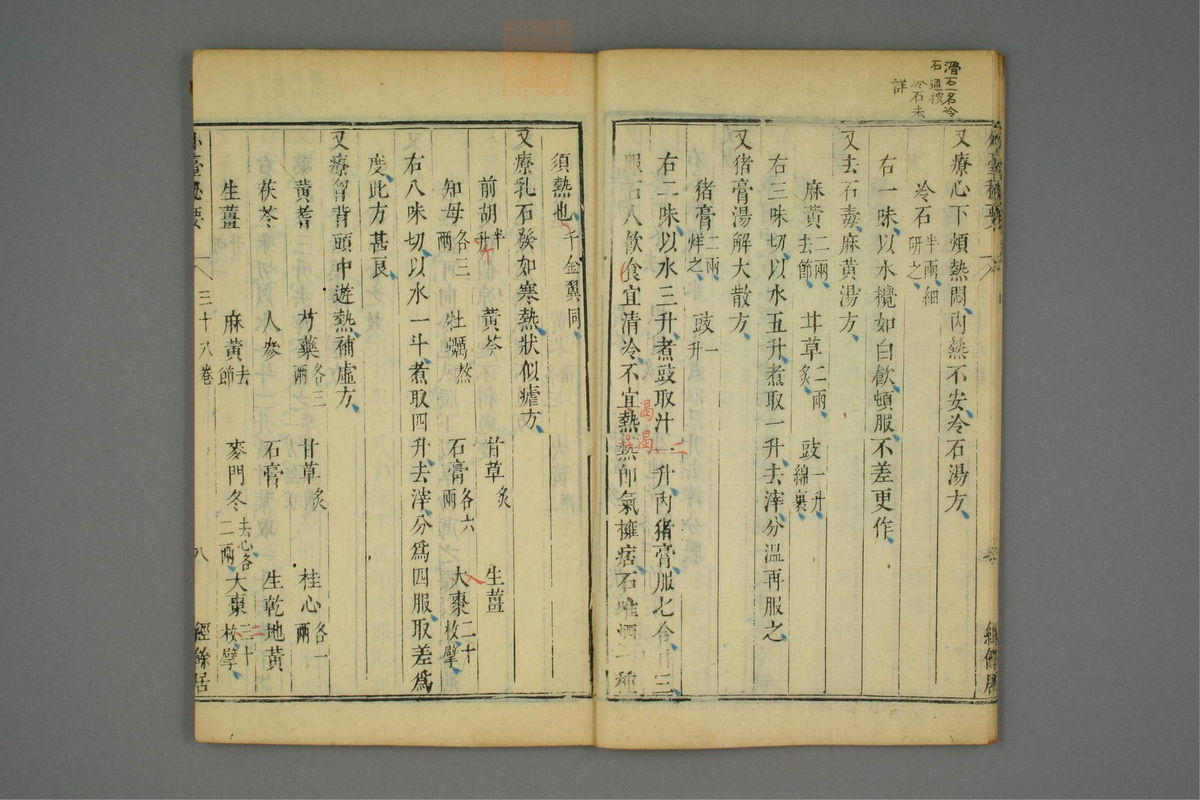 滑石一名冷
石通按
冷石未
詳
又療心下煩熱悶內熱不安冷石湯方
冷石半兩細研之
右一味以水攪如白飲頓服不差更作
又去石毒麻黃湯方
麻黃二兩去節 甘草二兩炙 豉一升綿裹
右三味切以水五升煮取一升去滓分溫再服之
又猪膏湯解大散方
猪膏二兩烊之 豉一升
右二味以水三升煮豉取汁一升內猪膏服七合日三
服石人飲食宜清冷不宜熱熱卽氣擁痞石唯一種
須熱也千金翼同
又療乳石發如寒熱狀似瘧方
前胡半升 黃芩 甘草炙 生薑
知母各三兩 牡蠣熬 石膏各六兩 大棗二十枚擘
右八味切以水一斗煮取四升去滓分爲四服取差爲
度此方甚良
又療胷背頭中遊熱補虛方
黃耆 芍藥各三兩 甘草炙 桂心各一兩
茯苓 人參 石膏 生乾地黃
生薑 麻黃去節 麥門冬去心各二兩 大棗三十枚擘
三十八卷 八 經餘居